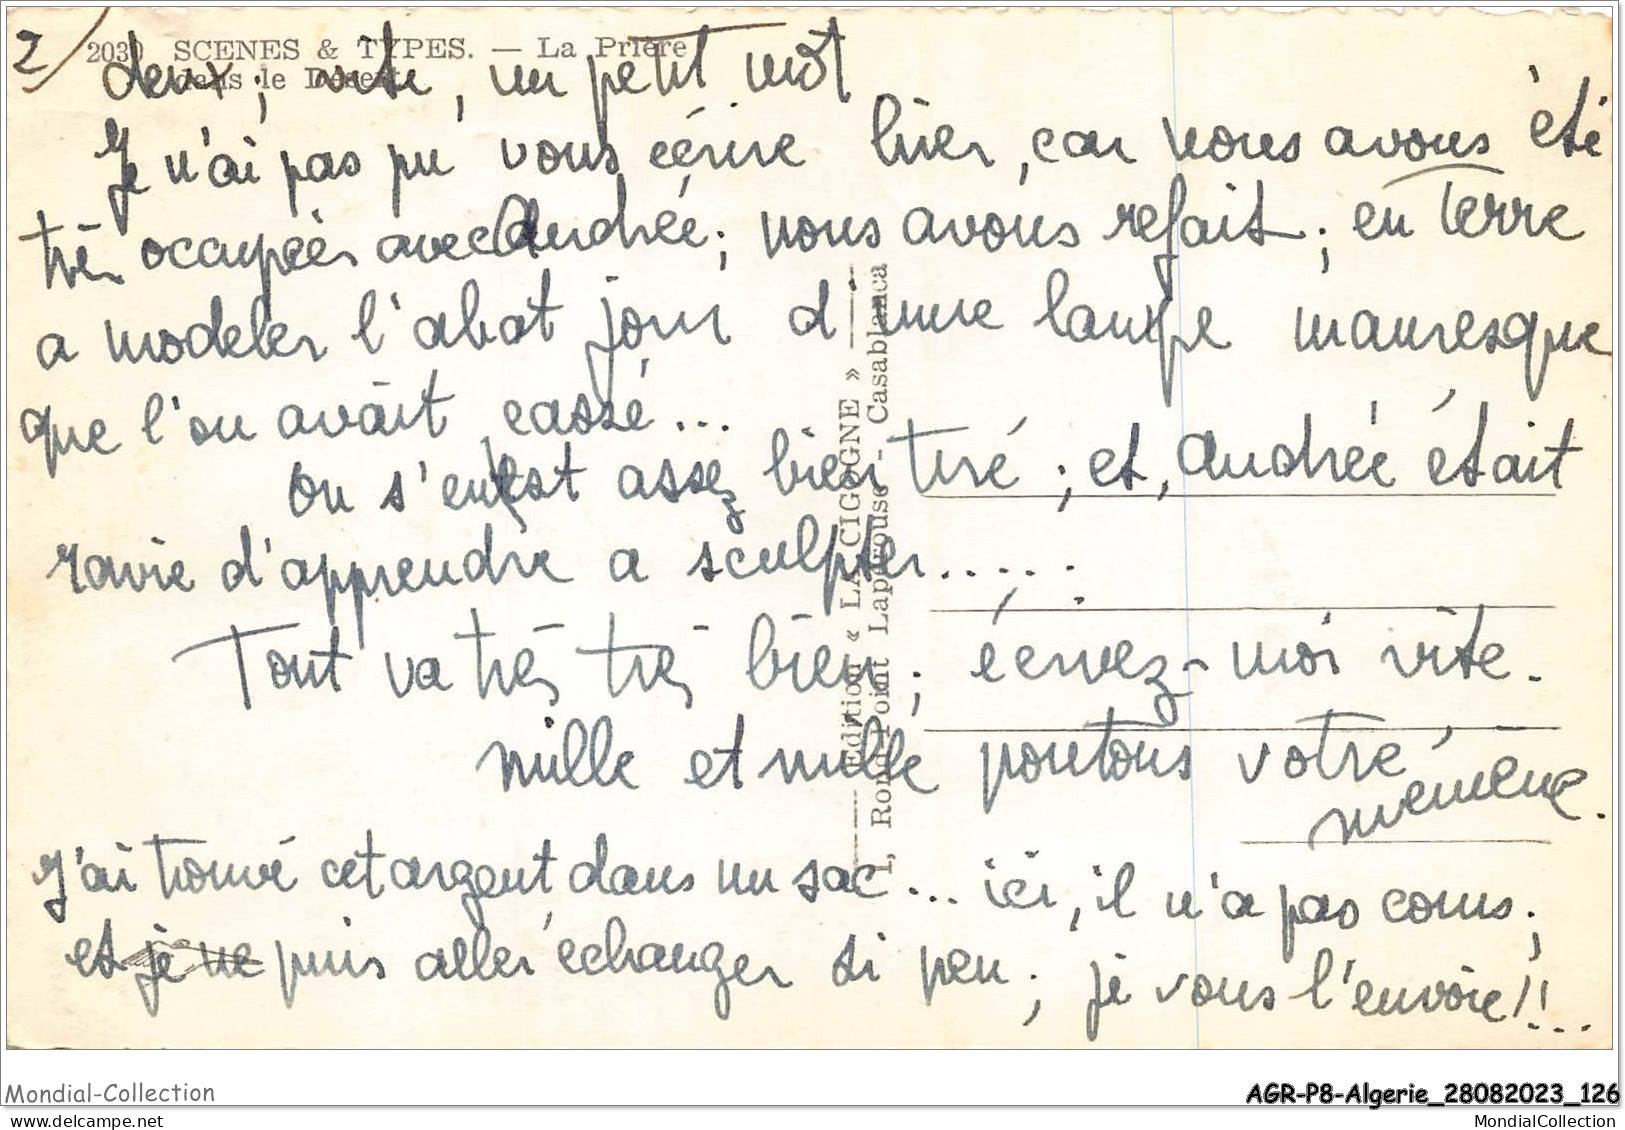 2/
2030 SCENES & TYPES. — La Prière
dans le Désert
deux; vite, un petit mot
Je n'ai pas pu vous écrire hier, car nous avons été
très occupées avec Andrée; nous avons refait; en Terre
a modeler l'abat jour d'une lampe mauresque
que l'on avait cassé...
On s'en est assez bien tiré; et, Andrée était
ravie d'apprendre a sculpter.....
Tout va très très bien; écrivez-moi vite.
mille et mille poutous votre
mémène.
J'ai trouvé cet argent dans un sac... ici, il n'a pas cours;
et je ne puis aller échanger si peu; je vous l'envoie!!...
Edition « LA CIGOGNE »
1, Rond-Point Lapérouse - Casablanca
Mondial-Collection
AGR-P8-Algerie_28082023_126
https://www.delcampe.net
MondialCollection